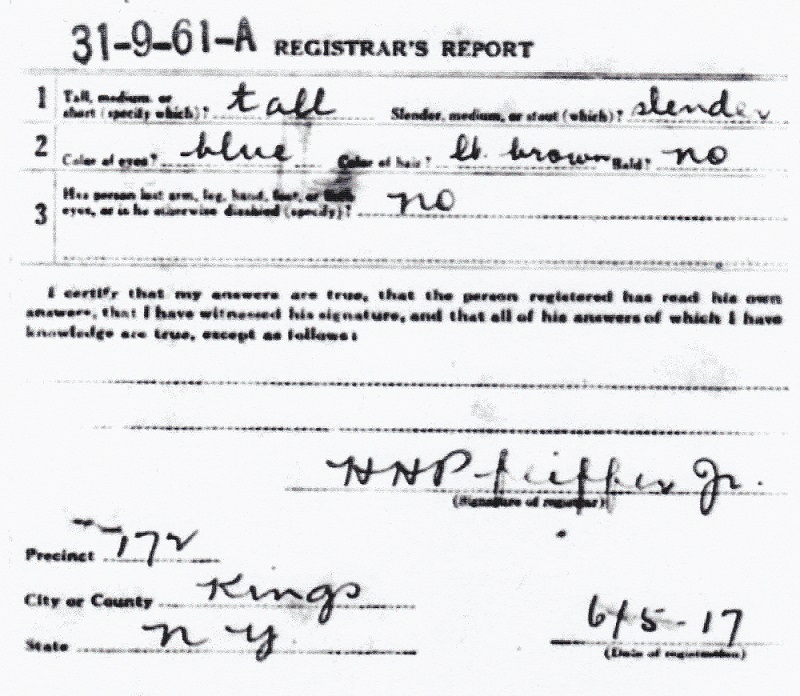 31-9-61-A REGISTRAR'S REPORT
1 Tall, medium, or short (specify which)? tall Slender, medium, or stout (which)? slender
2 Color of eyes? blue Color of hair? lt. brown Bald? no
3 Has person lost arm, leg, hand, foot, or both
eyes, or is he otherwise disabled (specify)? no
I certify that my answers are true, that the person registered has read his own
answers, that I have witnessed his signature, and that all of his answers of which I have
knowledge are true, except as follows:
H H Pfeiffer Jr.
(Signature of registrar)
Precinct 172
City or County Kings
State N Y
6/5-17
(Date of registration)